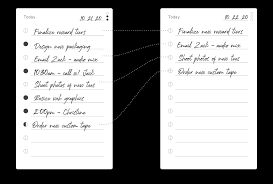 Today
10.21.20
Finalize reward tiers
Design new packaging
Email Zack - audio mix
10:30am - call w/ Jack
Shoot photos of new tins
Resize web graphics
2:00pm - Christine
Order new custom tape
Today
10.22.20
Finalize reward tiers
Email Zack - audio mix
Shoot photos of new tins
Order new custom tape